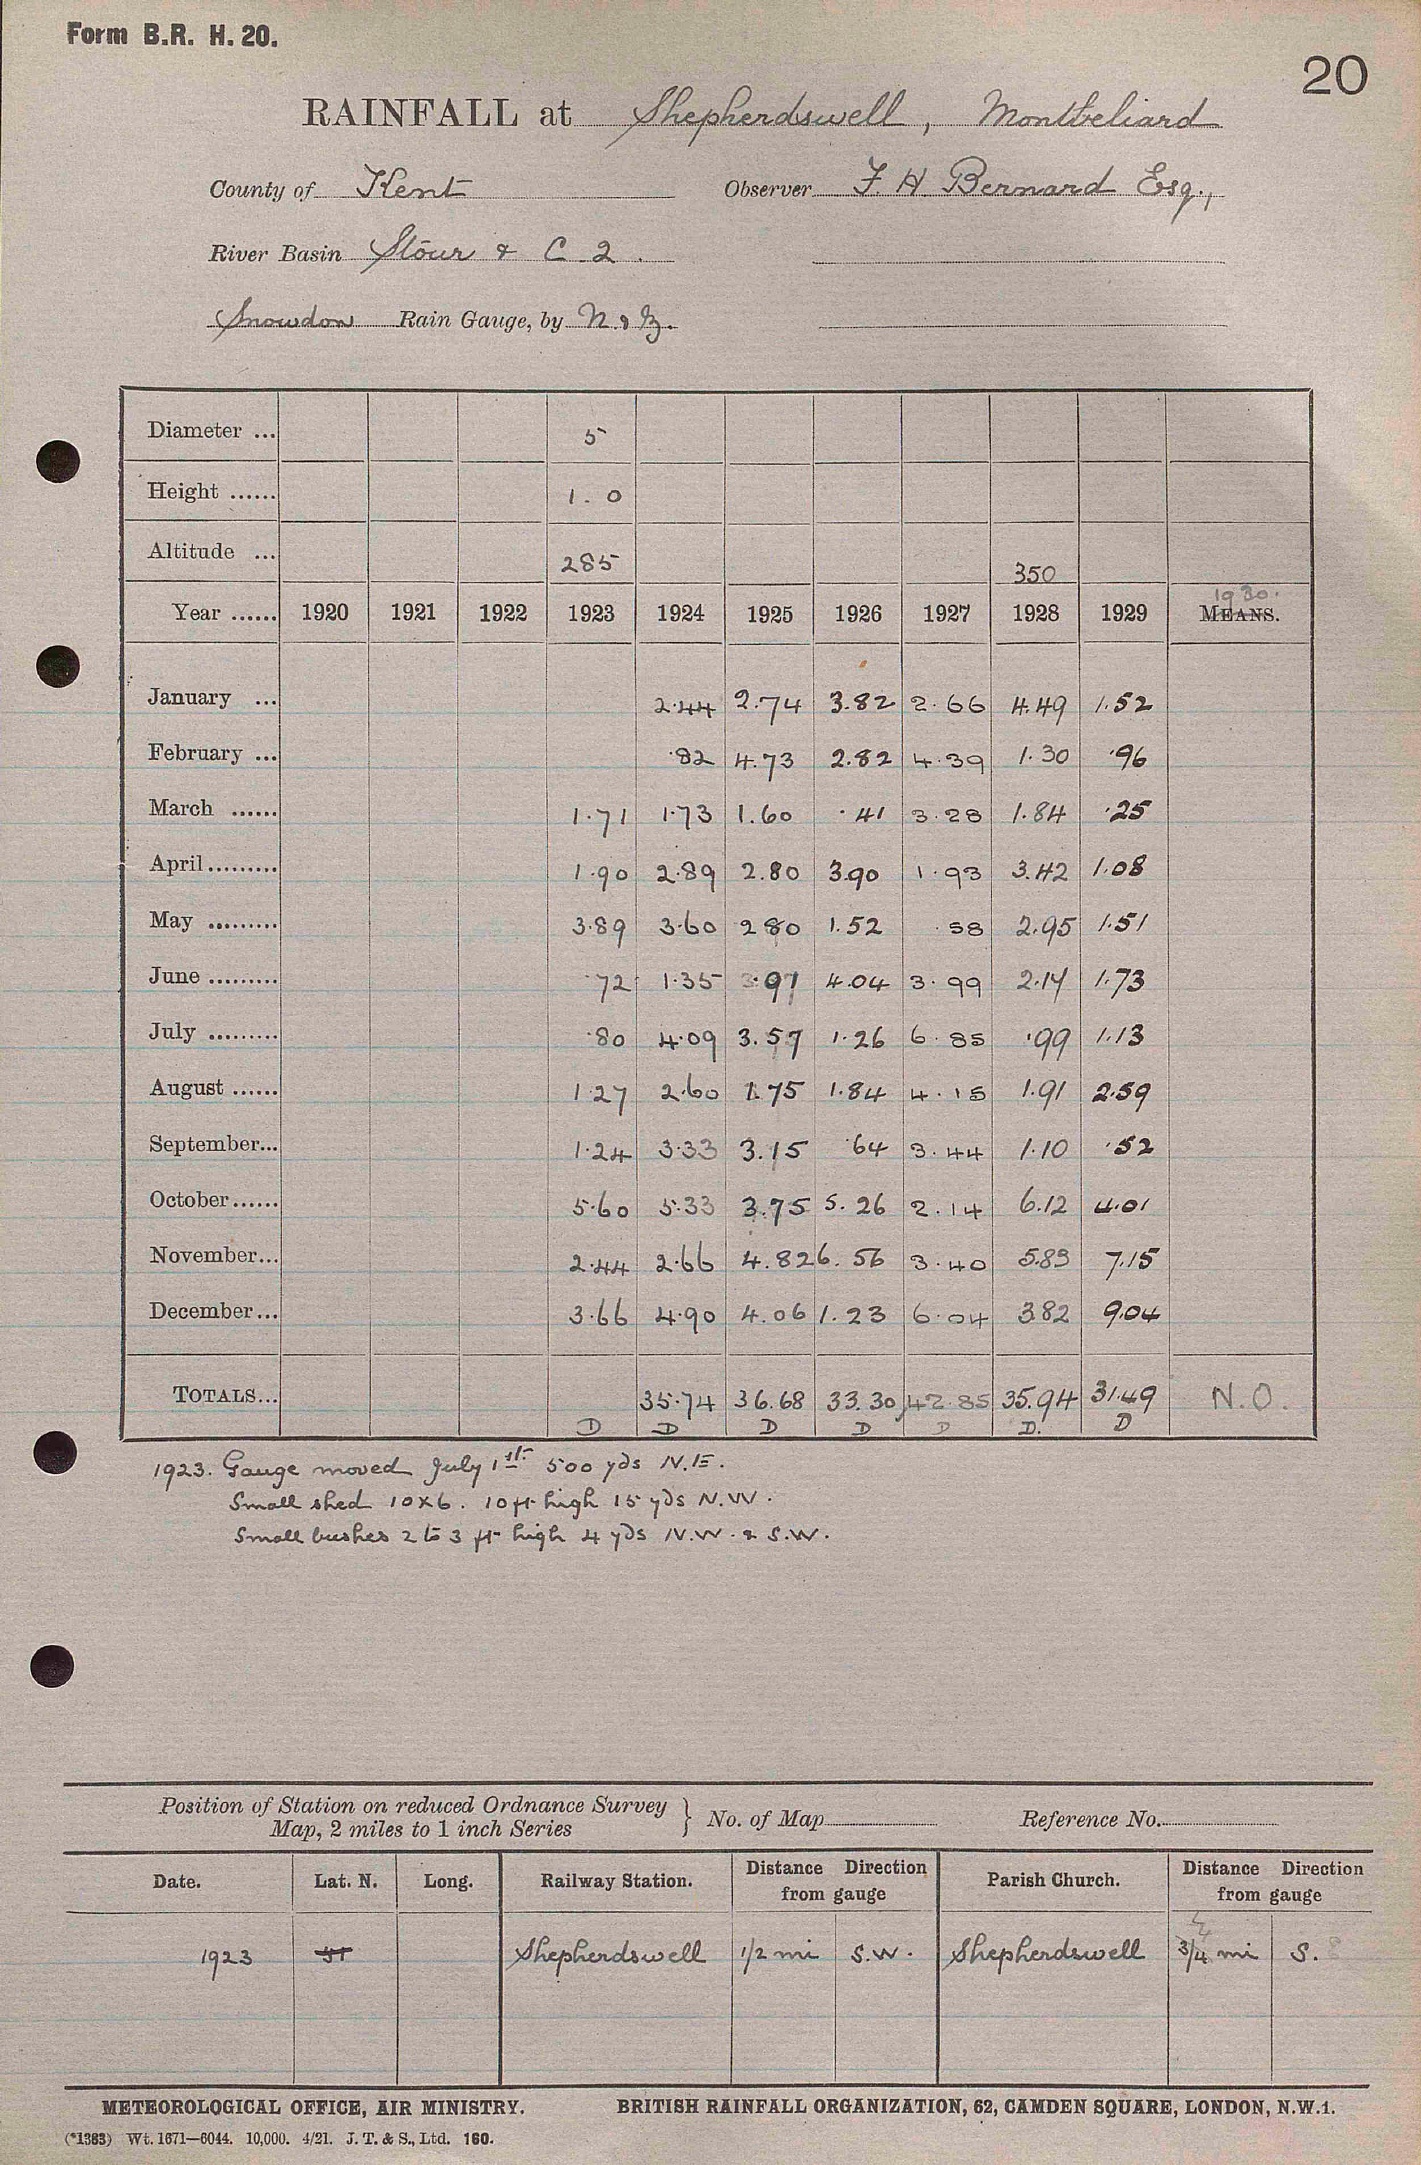 Form B.R. H. 20.
20
RAINFALL at Shepherdswell, Montbeliard
County of Kent Observer F. H. Bernard Esq.,
River Basin Stour & C 2.
Snowdon Rain Gauge, by N & Z.
Diameter ... 5
Height ...... 1.0
Altitude ... 285 350
1930.
Year ...... 1920 1921 1922 1923 1924 1925 1926 1927 1928 1929 MEANS.
January ... 2.44 2.74 3.82 2.66 4.49 1.52
February ... .82 4.73 2.82 4.39 1.30 .96
March ...... 1.71 1.73 1.60 .41 3.28 1.84 .25
April ......... 1.90 2.89 2.80 3.90 1.93 3.42 1.08
May ......... 3.89 3.60 2.80 1.52 .58 2.95 1.51
June ......... .72 1.35 .97 4.04 3.99 2.17 1.73
July ......... .80 4.09 3.57 1.26 6.85 .99 1.13
August ...... 1.27 2.60 1.75 1.84 4.15 1.91 2.59
September... 1.24 3.33 3.15 .64 3.44 1.10 .52
October ...... 5.60 5.33 3.75 5.26 2.14 6.12 4.01
November... 2.44 2.66 4.82 6.56 3.40 5.83 7.15
December... 3.66 4.90 4.06 1.23 6.04 3.82 9.04
TOTALS... 35.74 36.68 33.30 42.85 35.94 31.49 N.O.
D D D D D D. D
1923. Gauge moved July 1st 500 yds N.E.
Small shed 10x6. 10 ft high 15 yds N.W.
Small bushes 2 to 3 ft high 4 yds N.W. & S.W.
Position of Station on reduced Ordnance Survey
Map, 2 miles to 1 inch Series } No. of Map Reference No.
Date. Lat. N. Long. Railway Station. Distance Direction from gauge Parish Church. Distance Direction from gauge
1923 51 Shepherdswell 1/2 mi S.W. Shepherdswell 3/4 mi S.
METEOROLOGICAL OFFICE, AIR MINISTRY. BRITISH RAINFALL ORGANIZATION, 62, CAMDEN SQUARE, LONDON, N.W.1.
(*1383) Wt. 1671—6044. 10,000. 4/21. J. T. & S., Ltd. 160.